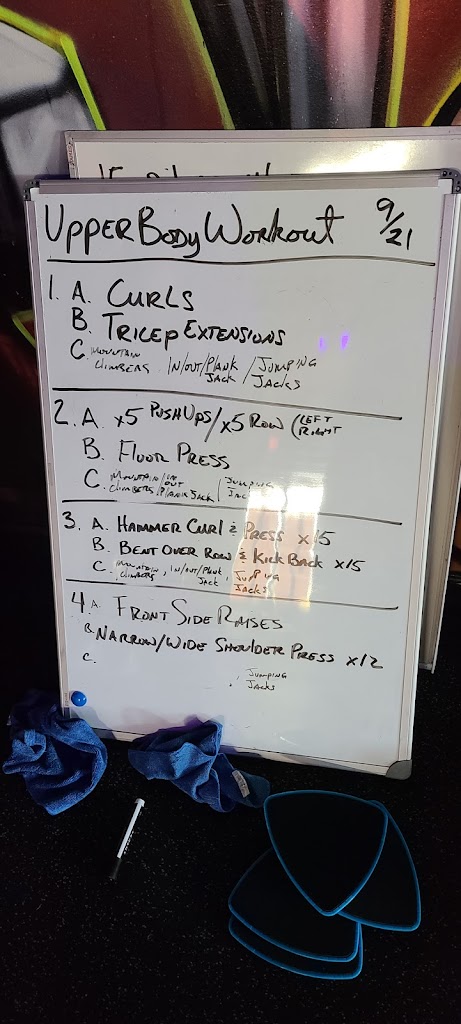 UPPER BODY WORKOUT 9/21
1. A. CURLS
B. TRICEP EXTENSIONS
C. MOUNTAIN CLIMBERS, IN/OUT/PLANK JACK / JUMPING JACKS
2. A x5 PUSHUPS/x5 ROW (LEFT RIGHT
B. FLOOR PRESS
C. MOUNTAIN CLIMBERS/IN OUT/PLANK JACK / JUMPING JACKS
3. A. HAMMER CURL & PRESS x15
B. BENT OVER ROW & KICK BACK x15
C. MOUNTAIN CLIMBERS, IN/OUT/PLANK JACK, JUMPING JACKS
4 A. FRONT SIDE RAISES
B. NARROW/WIDE SHOULDER PRESS x12
C. , JUMPING JACKS